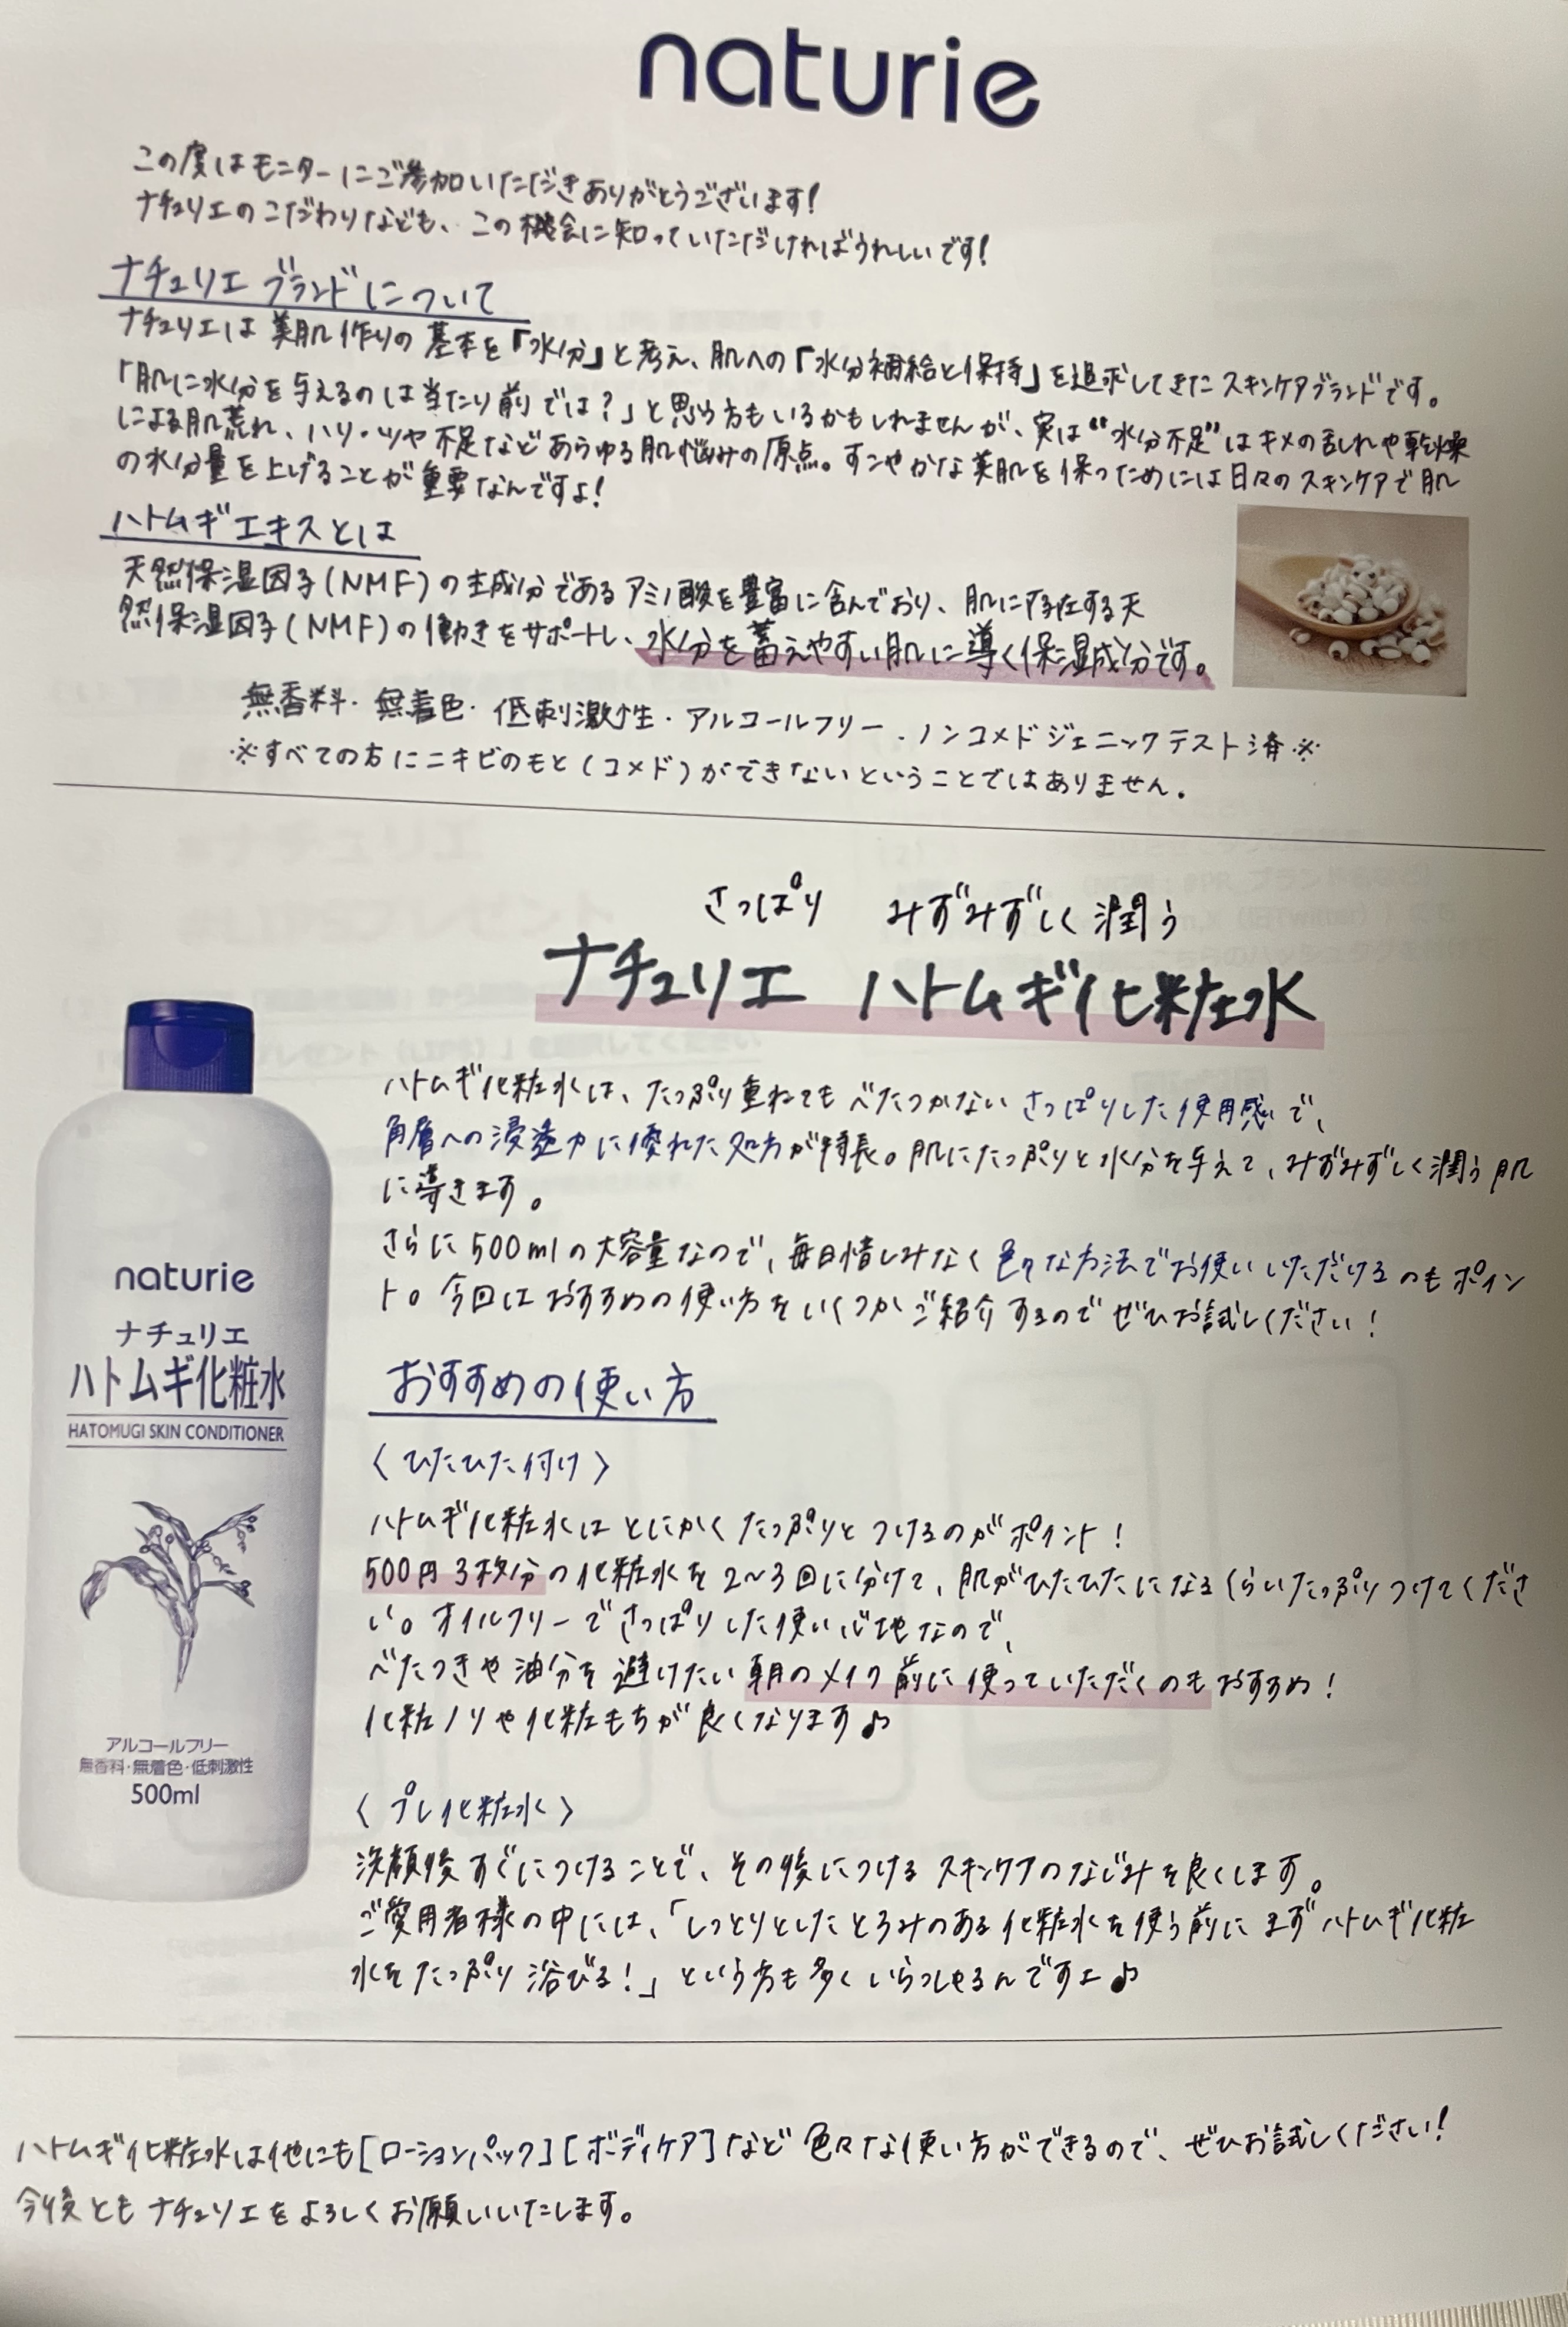 naturie
この度はモニターにご参加いただきありがとうございます!
ナチュリエのこだわりなども、この機会に知っていただければうれしいです!
ナチュリエ ブランドについて
ナチュリエは美肌作りの基本を「水分」と考え、肌への「水分補給と保持」を追求してきたスキンケアブランドです。
「肌に水分を与えるのは当たり前では?」と思う方もいるかもしれませんが、実は“水分不足”はキメの乱れや乾燥
による肌荒れ、ハリ・ツヤ不足などあらゆる肌悩みの原点。すこやかな美肌を保つためには日々のスキンケアで肌
の水分量を上げることが重要なんですよ!
ハトムギエキスとは
天然保湿因子(NMF)の主成分であるアミノ酸を豊富に含んでおり、肌に存在する天
然保湿因子(NMF)の働きをサポートし、水分を蓄えやすい肌に導く保湿成分です。
無香料・無着色・低刺激性・アルコールフリー・ノンコメドジェニックテスト済※
※すべての方にニキビのもと(コメド)ができないということではありません。
さっぱり みずみずしく潤う
ナチュリエ ハトムギ化粧水
ハトムギ化粧水は、たっぷり重ねてもべたつかないさっぱりした使用感で、
角層への浸透力に優れた処方が特長。肌にたっぷりと水分を与えて、みずみずしく潤う肌
に導きます。
さらに500mlの大容量なので、毎日惜しみなく色々な方法でお使いいただけるのもポイン
ト。今回はおすすめの使い方をいくつかご紹介するのでぜひお試しください!
おすすめの使い方
〈ひたひた付け〉
ハトムギ化粧水はとにかくたっぷりとつけるのがポイント!
500円3枚分の化粧水を2~3回に分けて、肌がひたひたになるくらいたっぷりつけてくださ
い。オイルフリーでさっぱりした使い心地なので、
べたつきや油分を避けたい朝のメイク前に使っていただくのもおすすめ!
化粧ノリや化粧もちが良くなります♪
〈プレ化粧水〉
洗顔後すぐにつけることで、その後につけるスキンケアのなじみを良くします。
ご愛用者様の中には、「しっとりとしたとろみのある化粧水を使う前にまずハトムギ化粧
水をたっぷり浴びる!」という方も多くいらっしゃるんですよ♪
naturie
ナチュリエ
ハトムギ化粧水
HATOMUGI SKIN CONDITIONER
アルコールフリー
無香料・無着色・低刺激性
500ml
ハトムギ化粧水は他にも[ローションパック][ボディケア]など色々な使い方ができるので、ぜひお試しください!
今後ともナチュリエをよろしくお願いいたします。